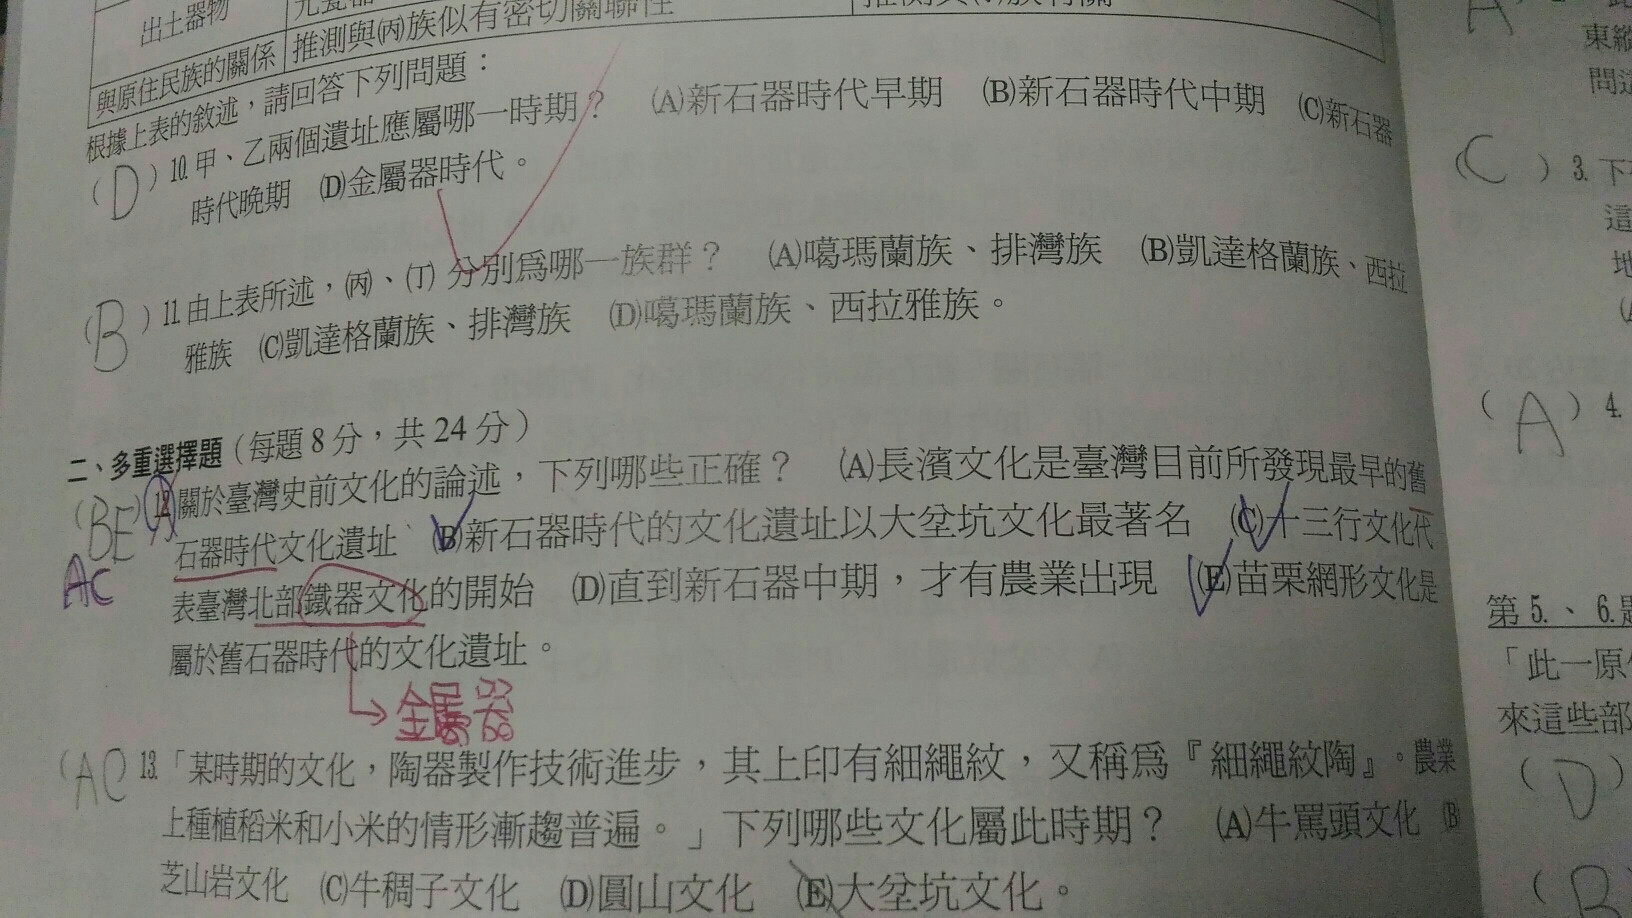 出土器物
推測與(丙)族似有密切關聯性
與原住民族的關係
根據上表的敘述，請回答下列問題：
(D)10.甲、乙兩個遺址應屬哪一時期？ (A)新石器時代早期 (B)新石器時代中期 (C)新石器
時代晚期 (D)金屬器時代。
(B)11.由上表所述，(丙)、(丁)分別為哪一族群？ (A)噶瑪蘭族、排灣族 (B)凱達格蘭族、西拉
雅族 (C)凱達格蘭族、排灣族 (D)噶瑪蘭族、西拉雅族。
二、多重選擇題（每題8分，共24分）
(BE)12.關於臺灣史前文化的論述，下列哪些正確？ (A)長濱文化是臺灣目前所發現最早的舊
AC
石器時代文化遺址 (B)新石器時代的文化遺址以大坌坑文化最著名 (C)十三行文化代
表臺灣北部鐵器文化的開始 (D)直到新石器中期，才有農業出現 (E)苗栗網形文化是
屬於舊石器時代的文化遺址。
→金屬器
(AC)13.「某時期的文化，陶器製作技術進步，其上印有細繩紋，又稱為『細繩紋陶』。農業
上種植稻米和小米的情形漸趨普遍。」下列哪些文化屬此時期？ (A)牛罵頭文化 (B)
芝山岩文化 (C)牛稠子文化 (D)圓山文化 (E)大坌坑文化。
A
東縱
問這
(C)3.下
這
地
(A)4.
第5.、6.題
「此一原
來這些部
(D)
(B